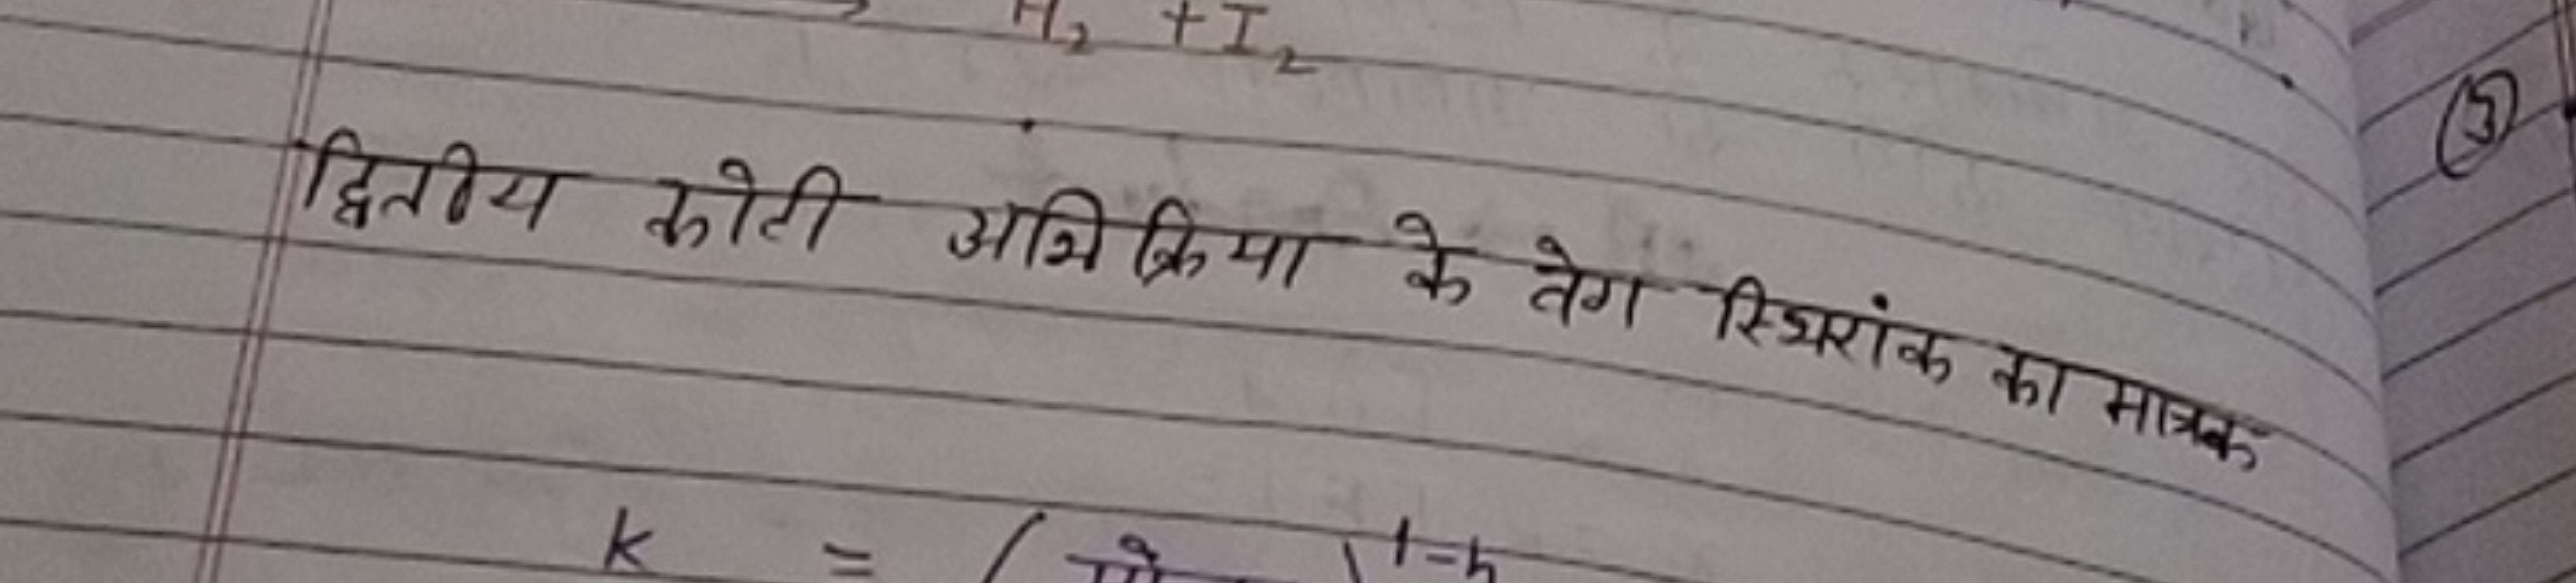 H₂ + I₂
द्वितीय कोटी अभिक्रिया के वेग स्थिरांक का मात्रक
k = ( मो )¹⁻ⁿ